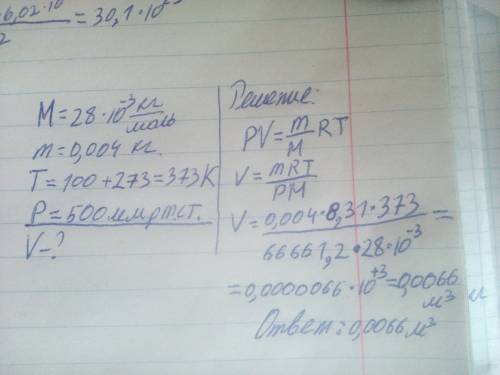 6,02·10
2
= 30,1·10
M = 28·10⁻³ кг/моль
m = 0,004 кг.
T = 100 + 273 = 373 К
P = 500 мм рт. ст.
V - ?
Решение:
PV = m/M RT
V = mRT/PM
V = 0,004·8,31·373 / 66661,2·28·10⁻³ =
= 0,0000066·10⁺³ = 0,0066 м³
Ответ: 0,0066 м³